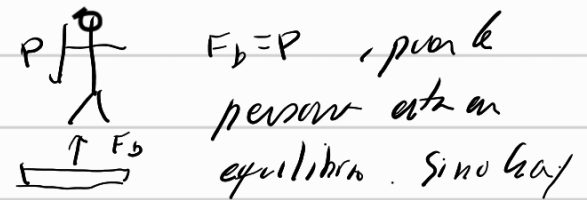 P
F_b = P , pues la
persona está en
equilibrio. Si no hay
F_b